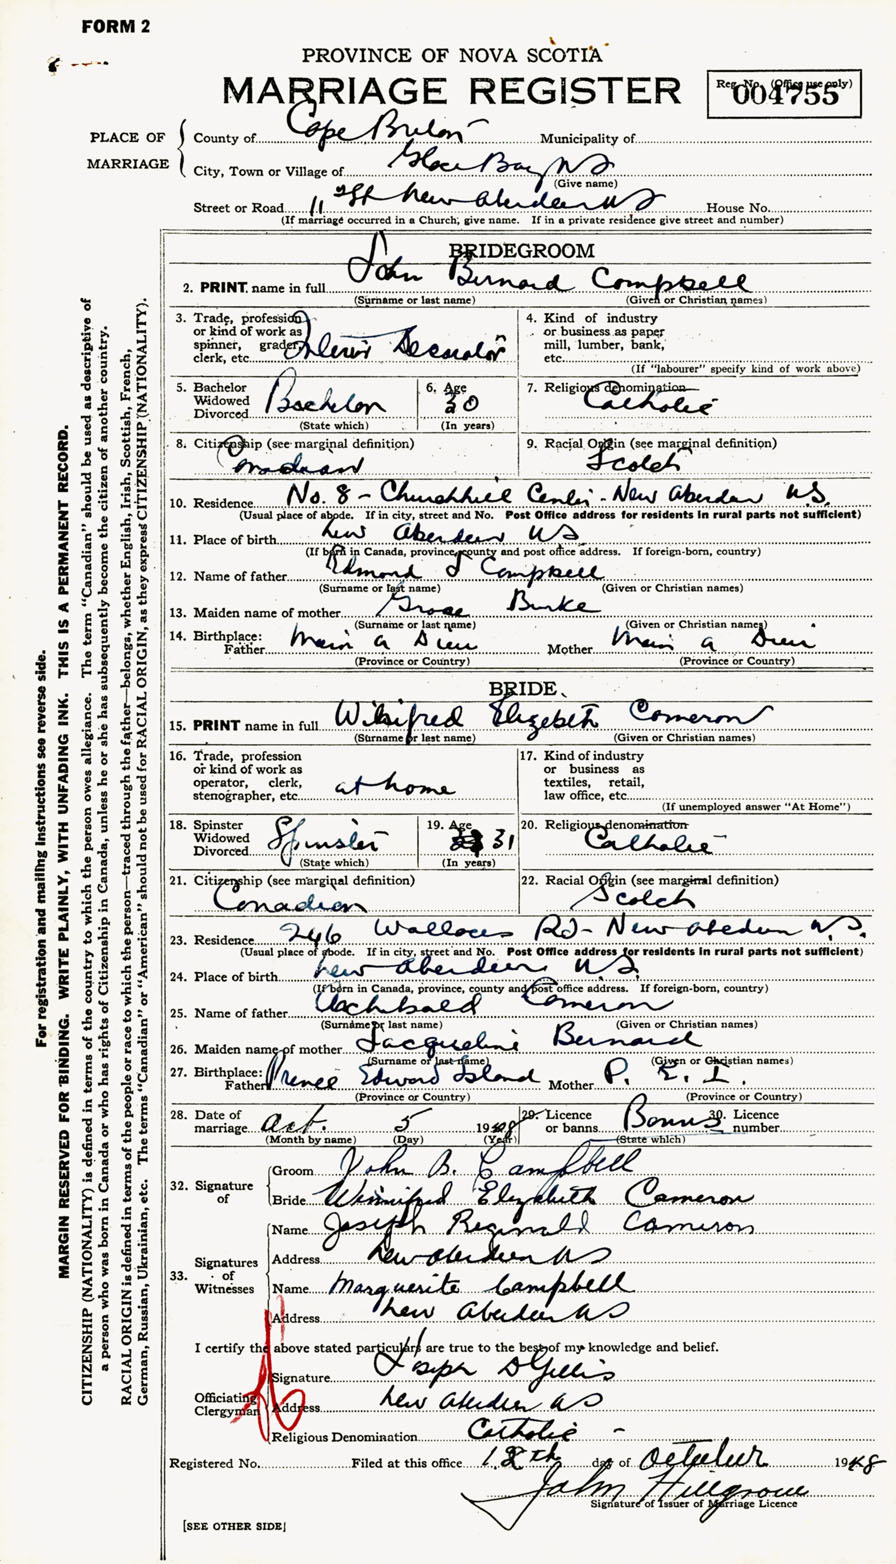 FORM 2
PROVINCE OF NOVA SCOTIA
MARRIAGE REGISTER
Reg. No. (Office use only)
004755
PLACE OF MARRIAGE
County of Cape Breton Municipality of
City, Town or Village of Glace Bay NS
(Give name)
Street or Road 11 St New Aberdeen NS House No.
(If marriage occurred in a Church, give name. If in a private residence give street and number)
BRIDEGROOM
2. PRINT name in full John Bernard Campbell
(Surname or last name) (Given or Christian names)
3. Trade, profession or kind of work as spinner, grader, clerk, etc. Interior Decorator
4. Kind of industry or business as paper mill, lumber, bank, etc.
(If "labourer" specify kind of work above)
5. Bachelor Widowed Divorced Bachelor
(State which)
6. Age 30
(In years)
7. Religious denomination Catholic
8. Citizenship (see marginal definition)
Canadian
9. Racial Origin (see marginal definition)
Scotch
10. Residence No. 8 - Churchhill Center - New Aberdeen N.S.
(Usual place of abode. If in city, street and No. Post Office address for residents in rural parts not sufficient)
11. Place of birth New Aberdeen NS
(If born in Canada, province, county and post office address. If foreign-born, country)
12. Name of father Edmond J Campbell
(Surname or last name) (Given or Christian names)
13. Maiden name of mother Grace Burke
(Surname or last name) (Given or Christian names)
14. Birthplace: Father Main a Dieu Mother Main a Dieu
(Province or Country) (Province or Country)
BRIDE
15. PRINT name in full Winifred Elizabeth Cameron
(Surname or last name) (Given or Christian names)
16. Trade, profession or kind of work as operator, clerk, stenographer, etc. at home
17. Kind of industry or business as textiles, retail, law office, etc.
(If unemployed answer "At Home")
18. Spinster Widowed Divorced Spinster
(State which)
19. Age 31
(In years)
20. Religious denomination
Catholic
21. Citizenship (see marginal definition)
Canadian
22. Racial Origin (see marginal definition)
Scotch
23. Residence 246 Wallaces Rd - New Aberdeen N.S.
(Usual place of abode. If in city, street and No. Post Office address for residents in rural parts not sufficient)
24. Place of birth New Aberdeen N.S.
(If born in Canada, province, county and post office address. If foreign-born, country)
25. Name of father Archibald Cameron
(Surname or last name) (Given or Christian names)
26. Maiden name of mother Jacqueline Bernard
(Surname or last name) (Given or Christian names)
27. Birthplace: Father Prince Edward Island Mother P. E. I.
(Province or Country) (Province or Country)
28. Date of marriage Oct. 5 1948
(Month by name) (Day) (Year)
29. Licence or banns Banns
(State which)
30. Licence number
32. Signature of
Groom John B. Campbell
Bride Winnifred Elizabeth Cameron
33. Signatures of Witnesses
Name Joseph Reginald Cameron
Address New Aberdeen NS
Name Marguerite Campbell
Address New Aberdeen NS
I certify the above stated particulars are true to the best of my knowledge and belief.
Officiating Clergyman
Signature Joseph D Gillis
Address New Aberdeen NS
Religious Denomination Catholic -
Registered No. Filed at this office 12th day of October 1948
John Hillgrove
Signature of Issuer of Marriage Licence
[SEE OTHER SIDE]
For registration and mailing instructions see reverse side.
MARGIN RESERVED FOR BINDING. WRITE PLAINLY, WITH UNFADING INK. THIS IS A PERMANENT RECORD.
CITIZENSHIP (NATIONALITY) is defined in terms of the country to which the person owes allegiance. The term "Canadian" should be used as descriptive of
a person who was born in Canada or who has rights of Citizenship in Canada, unless he or she has subsequently become the citizen of another country.
RACIAL ORIGIN is defined in terms of the people or race to which the person—traced through the father—belongs, whether English, Irish, Scottish, French,
German, Russian, Ukrainian, etc. The terms "Canadian" or "American" should not be used for RACIAL ORIGIN, as they express CITIZENSHIP (NATIONALITY).